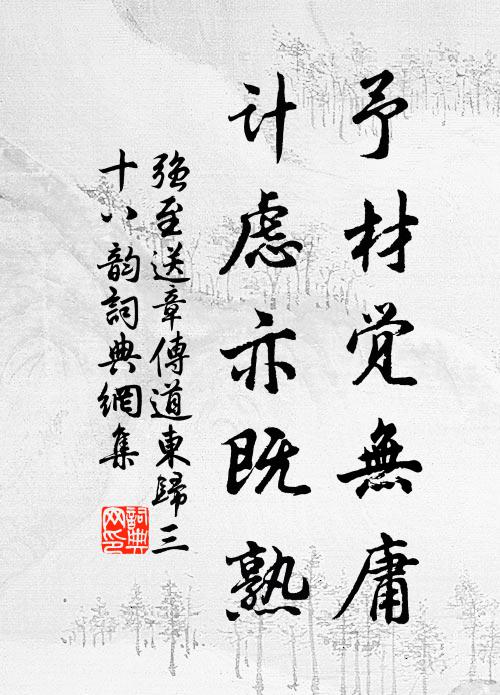 予材覚無庸
计虑亦既熟
强至送章傳道東歸三
十八韵詞典網集
詞典网印